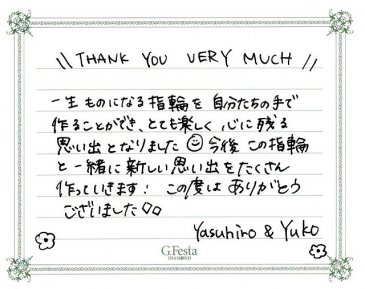 \\ THANK YOU VERY MUCH //
一生ものになる指輪を自分たちの手で
作ることができ、とても楽しく心に残る
思い出となりました☺今後この指輪
と一緒に新しい思い出をたくさん
作っていきます! この度はありがとう
ございました♡♡
Yasuhiro & Yuko
G.Festa
DIAMOND